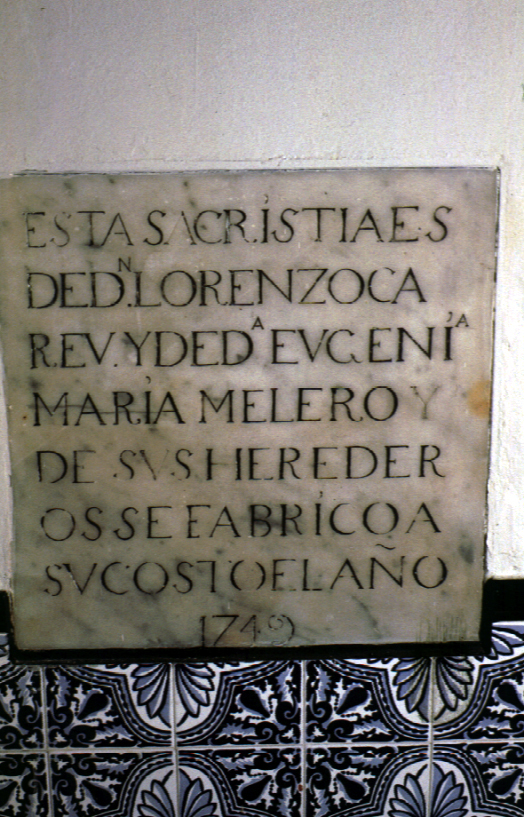 ESTA SACRISTIA ES
DE Dᴺ. LORENZO CA
REV. Y DE Dᴬ EVGENIᴬ
MARIA MELERO Y
DE SVS. HEREDER
OS SE FABRICO A
SV COSTO EL AÑO
1749